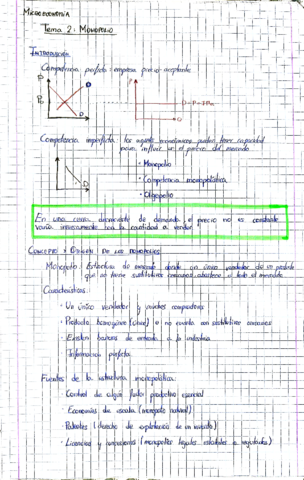 MICROECONOMÍA
Tema 2: MONOPOLIO
INTRODUCCIÓN
Competencia perfecta: empresa precio aceptante
P
O
P
D
Competencia imperfecta: los agentes económicos pueden tener capacidad
para influir en el precio del mercado
• Monopolio
• Competencia monopolística
• Oligopolio
D
En una curva decreciente de demanda, el precio no es constante
varía inversamente con la cantidad a vender
CONCEPTO Y ORIGEN DE LOS MONOPOLIOS
Monopolio: Estructura de mercado donde un único vendedor de un producto
que no tiene sustitutivos cercanos abastece a todo el mercado
Características:
• Un único vendedor y muchos compradores
• Producto homogéneo (único) o no cuenta con sustitutivos cercanos
• Existen barreras de entrada a la industria
• Información perfecta
Fuentes de la estructura monopolística:
• Control de algún factor productivo esencial
• Economías de escala (monopolio natural)
• Patentes (derecho de explotación de un invento)
• Licencias y concesiones (monopolios legales, estatales o regulados)